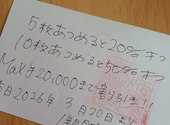 5枚あつめると20%オフ
10枚あつめると50%オフ
Max¥20,000まで割り引き!!
本日2026年3月20日より